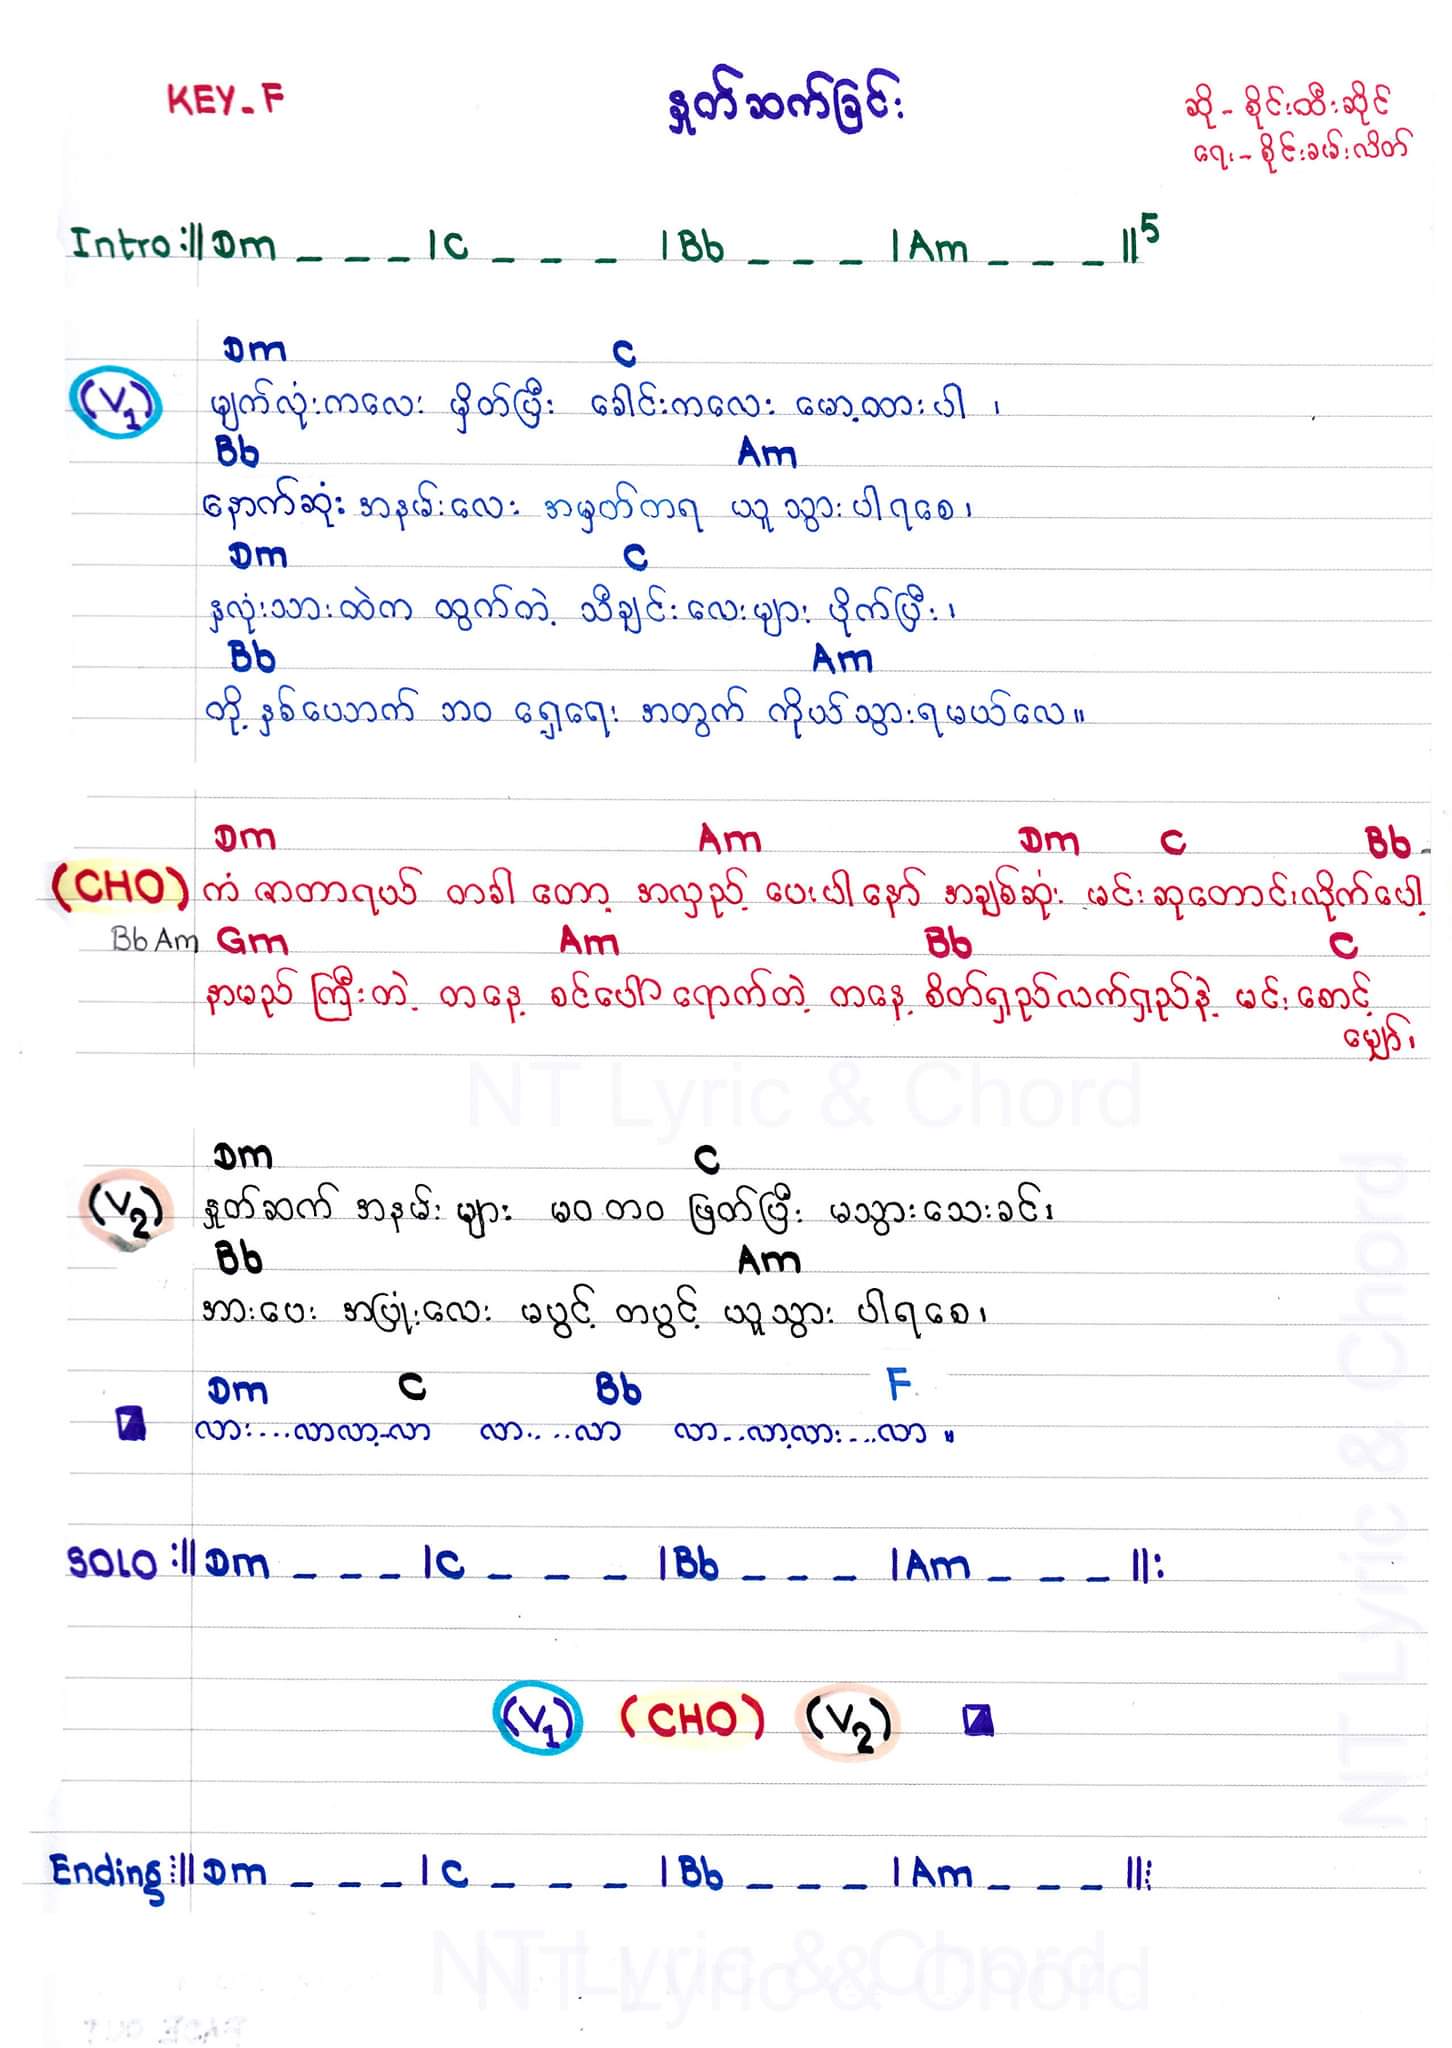 KEY - F
နှုတ်ဆက်ခြင်း
ဆို - စိုင်းထီးဆိုင်
ရေး - စိုင်းခမ်းလိတ်
Intro :|| Dm _ _ _ | C _ _ _ | Bb _ _ _ | Am _ _ _ ||5
Dm C
(V1) မျက်လုံးကလေး မှိတ်ပြီး ခေါင်းကလေး မော့ထားပါ ၊
Bb Am
နောက်ဆုံး အနမ်းလေး အမှတ်တရ ယူသွားပါရစေ ၊
Dm C
နှလုံးသားထဲက ထွက်တဲ့ သီချင်းလေးများ ဖိုက်ပြီး ၊
Bb Am
တို့ နှစ်ယောက် ဘဝ ရှေ့ရေး အတွက် ကိုယ်သွားရမယ်လေ ။
Dm Am Dm C Bb
(CHO) ကံ ဇာတာရယ် တခါ တော့ အလှည့် ပေးပါနော် အချစ်ဆုံး မင်းဆုတောင်းလိုက်ပေါ့
Bb Am Gm Am Bb C
နာမည် ကြီးတဲ့ တနေ့ စင်ပေါ် ရောက်တဲ့ တနေ့ စိတ်ရှည်လက်ရှည်နဲ့ မင်းစောင့်
မျှော် ၊
Dm C
(V2) နှုတ်ဆက် အနမ်း များ မဝ တဝ ဖြတ်ပြီး မသွားသေးခင် ၊
Bb Am
အားပေး အပြုံးလေး မပွင့် တပွင့် ယူသွား ပါရစေ ၊
Dm C Bb F
လား....လာလာ့-လာ လာ....လာ လာ...လာ့လား...လာ ။
SOLO :|| Dm _ _ _ | C _ _ _ | Bb _ _ _ | Am _ _ _ ||:
(V1) (CHO) (V2)
Ending :|| Dm _ _ _ | C _ _ _ | Bb _ _ _ | Am _ _ _ ||:
NT Lyric & Chord
NT Lyric & Chord
NT Lyric & Chord
NT Lyric & Chord